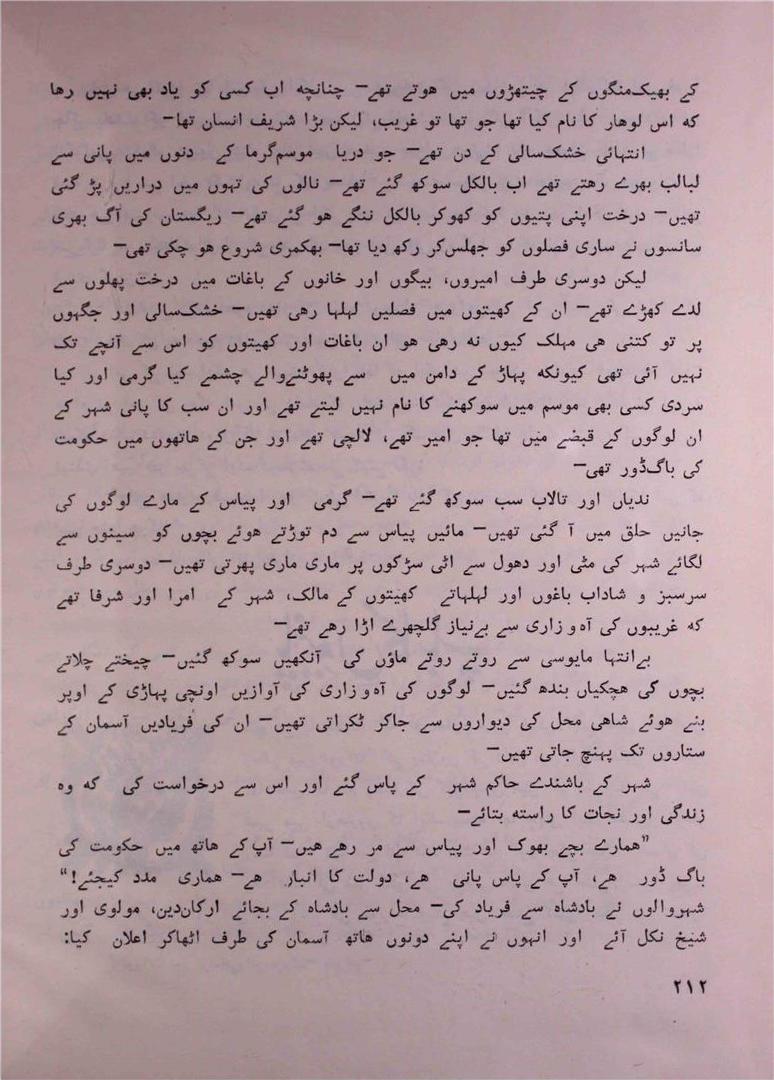 کے بھیک‌منگوں کے چیتھڑوں میں ھوتے تھے— چنانچه اب کسی کو یاد بھی نہیں رھا
که اس لوھار کا نام کیا تھا جو تھا تو غریب، لیکن بڑا شریف انسان تھا—
انتہائی خشک‌سالی کے دن تھے— جو دریا موسم‌گرما کے دنوں میں پانی سے
لبالب بھرے رھتے تھے اب بالکل سوکھ گئے تھے— نالوں کی تہوں میں دراریں پڑ گئی
تھیں— درخت اپنی پتیوں کو کھوکر بالکل ننگے ھو گئے تھے— ریگستان کی آگ بھری
سانسوں نے ساری فصلوں کو جھلس‌کر رکھ دیا تھا— بھکمری شروع ھو چکی تھی—
لیکن دوسری طرف امیروں، بیگوں اور خانوں کے باغات میں درخت پھلوں سے
لدے کھڑے تھے— ان کے کھیتوں میں فصلیں لہلہا رھی تھیں— خشک‌سالی اور جگہوں
پر تو کتنی ھی مہلک کیوں نه رھی ھو ان باغات اور کھیتوں کو اس سے آنچے تک
نہیں آئی تھی کیونکه پہاڑ کے دامن میں سے پھوٹنے‌والے چشمے کیا گرمی اور کیا
سردی کسی بھی موسم میں سوکھنے کا نام نہیں لیتے تھے اور ان سب کا پانی شہر کے
ان لوگوں کے قبضے میں تھا جو امیر تھے، لالچی تھے اور جن کے ھاتھوں میں حکومت
کی باگ‌ڈور تھی—
ندیاں اور تالاب سب سوکھ گئے تھے— گرمی اور پیاس کے مارے لوگوں کی
جانیں حلق میں آ گئی تھیں— مائیں پیاس سے دم توڑتے ھوئے بچوں کو سینوں سے
لگائے شہر کی مٹی اور دھول سے اٹی سڑکوں پر ماری ماری پھرتی تھیں— دوسری طرف
سرسبز و شاداب باغوں اور لہلہاتے کھیتوں کے مالک، شہر کے امرا اور شرفا تھے
که غریبوں کی آہ و زاری سے بے‌نیاز گلچھرے اڑا رھے تھے—
بے‌انتہا مایوسی سے روتے روتے ماؤں کی آنکھیں سوکھ گئیں— چیختے چلاتے
بچوں کی ھچکیاں بندھ گئیں— لوگوں کی آہ و زاری کی آوازیں اونچی پہاڑی کے اوپر
بنے ھوئے شاھی محل کی دیواروں سے جاکر ٹکراتی تھیں— ان کی فریادیں آسمان کے
ستاروں تک پہنچ جاتی تھیں—
شہر کے باشندے حاکم شہر کے پاس گئے اور اس سے درخواست کی که وہ
زندگی اور نجات کا راسته بتائے—
”ھمارے بچے بھوک اور پیاس سے مر رھے ھیں— آپ‌کے ھاتھ میں حکومت کی
باگ ڈور ھے، آپ کے پاس پانی ھے، دولت کا انبار ھے— ھماری مدد کیجئے!“
شہروالوں نے بادشاہ سے فریاد کی— محل سے بادشاہ کے بجائے ارکان‌دین، مولوی اور
شیخ نکل آئے اور انہوں نے اپنے دونوں ھاتھ آسمان کی طرف اٹھاکر اعلان کیا:
۲۱۲